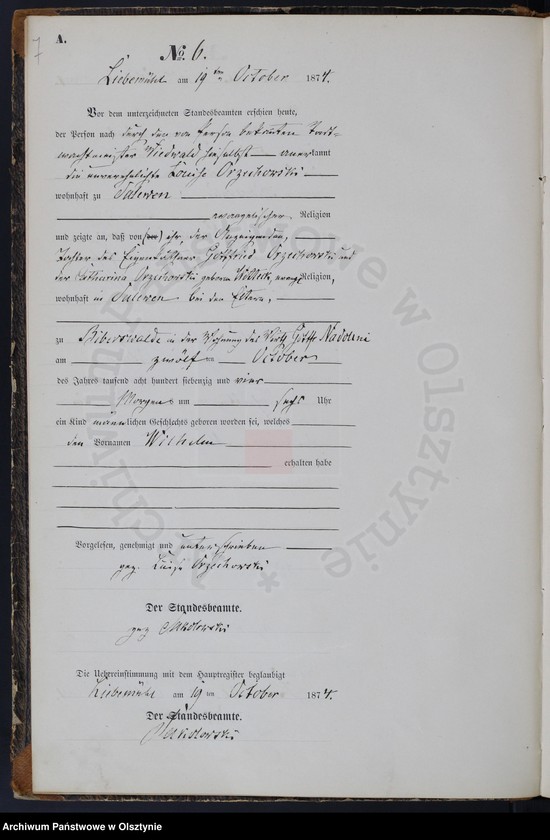 7
A.
No. 6.
Liebemühl am 19 ten October 1874.
Vor dem unterzeichneten Standesbeamten erschien heute,
der Person nach durch den von Person bekannten Stadt-
wachtmeister Niedwald hieselbst anerkannt
die unverehelichte Louise Orzechowski
wohnhaft zu Taleren
evangelischer Religion
und zeigte an, daß von ihr, der Anzeigenden,
Tochter des Eigenkäthner Gottfried Orzechowski und
der Catharina Orzechowski geborne evang. Religion,
wohnhaft in Taleren bei den Eltern,
zu Biberswalde in der Wohnung des Wirth Gottfr Nadolni
am zwölf ten October
des Jahres tausend acht hundert siebenzig und vier
Morgens um sechs Uhr
ein Kind männlichen Geschlechts geboren worden sei, welches
den Vornamen Wilhelm
erhalten habe
Vorgelesen, genehmigt und unterschrieben
gez. Luise Orzechowski
Der Standesbeamte.
gez
Die Uebereinstimmung mit dem Hauptregister beglaubigt
Liebemühl am 19 ten October 1874.
Der Standesbeamte.
Archiwum Państwowe w Olsztynie
Archiwum Państwowe w Olsztynie